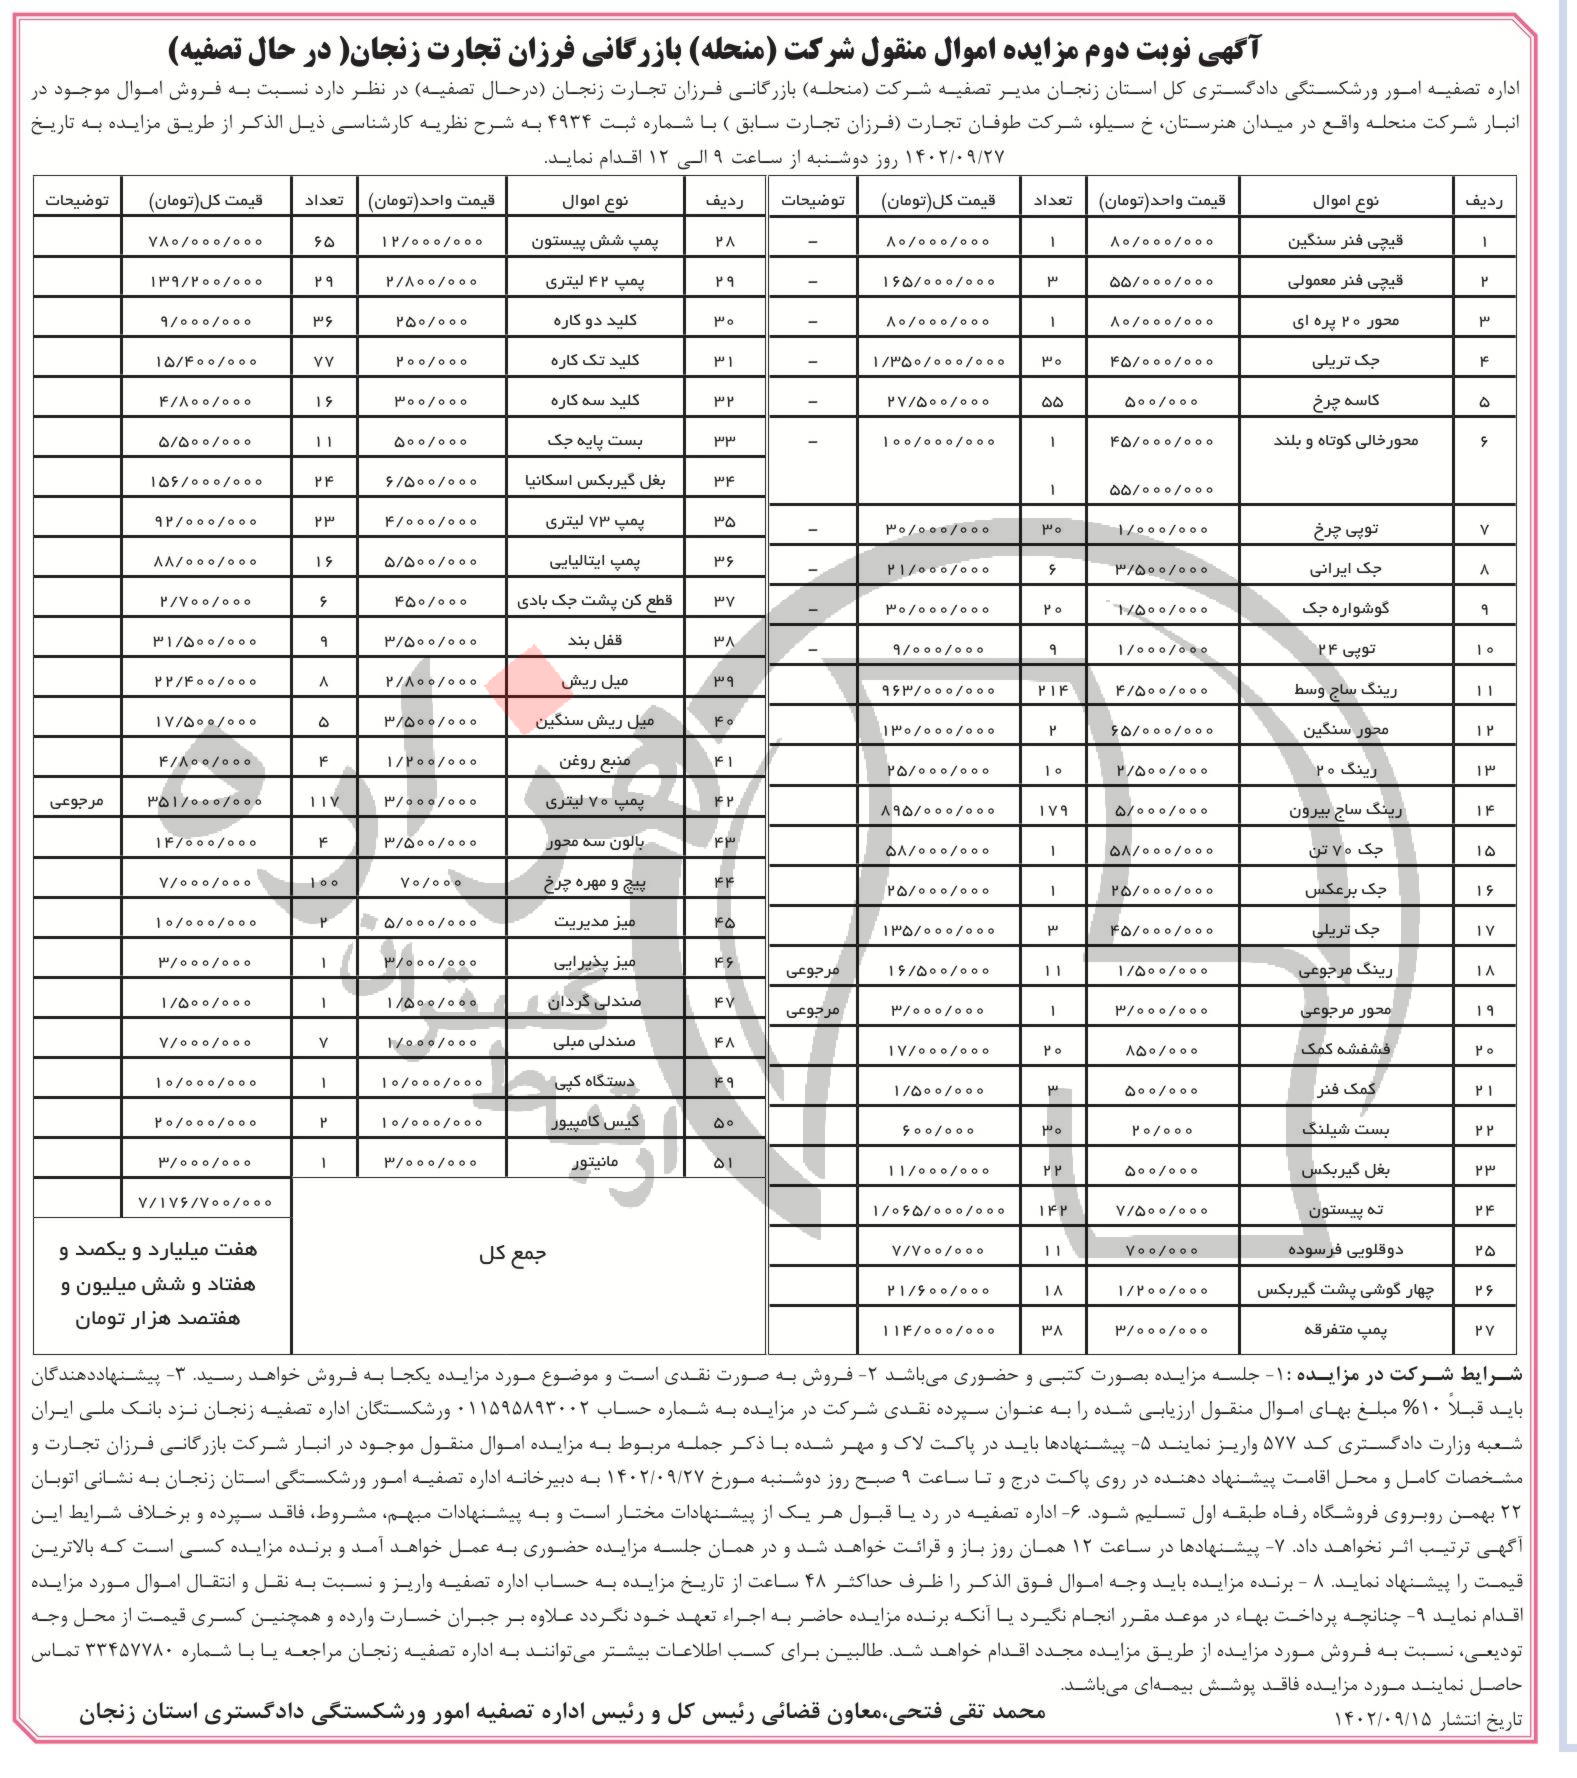 آگهی نوبت دوم مزایده اموال منقول شرکت (منحله) بازرگانی فرزان تجارت زنجان( در حال تصفیه)
اداره تصفیه امور ورشکستگی دادگستری کل استان زنجان مدیر تصفیه شرکت (منحله) بازرگانی فرزان تجارت زنجان (درحال تصفیه) در نظر دارد نسبت به فروش اموال موجود در
انبار شرکت منحله واقع در میدان هنرستان، خ سیلو، شرکت طوفان تجارت (فرزان تجارت سابق ) با شماره ثبت ۴۹۳۴ به شرح نظریه کارشناسی ذیل الذکر از طریق مزایده به تاریخ
۱۴۰۲/۰۹/۲۷ روز دوشنبه از ساعت ۹ الی ۱۲ اقدام نماید.
ردیف نوع اموال قیمت واحد(تومان) تعداد قیمت کل(تومان) توضیحات
۱ قیچی فنر سنگین ۸۰/۰۰۰/۰۰۰ ۱ ۸۰/۰۰۰/۰۰۰ -
۲ قیچی فنر معمولی ۵۵/۰۰۰/۰۰۰ ۳ ۱۶۵/۰۰۰/۰۰۰ -
۳ محور ۲۰ پره ای ۸۰/۰۰۰/۰۰۰ ۱ ۸۰/۰۰۰/۰۰۰ -
۴ جک تریلی ۴۵/۰۰۰/۰۰۰ ۳۰ ۱/۳۵۰/۰۰۰/۰۰۰ -
۵ کاسه چرخ ۵۰۰/۰۰۰ ۵۵ ۲۷/۵۰۰/۰۰۰ -
۶ محورخالی کوتاه و بلند ۴۵/۰۰۰/۰۰۰ ۱ ۱۰۰/۰۰۰/۰۰۰ -
۵۵/۰۰۰/۰۰۰ ۱
۷ توپی چرخ ۱/۰۰۰/۰۰۰ ۳۰ ۳۰/۰۰۰/۰۰۰ -
۸ جک ایرانی ۳/۵۰۰/۰۰۰ ۶ ۲۱/۰۰۰/۰۰۰ -
۹ گوشواره جک ۱/۵۰۰/۰۰۰ ۲۰ ۳۰/۰۰۰/۰۰۰ -
۱۰ توپی ۲۴ ۱/۰۰۰/۰۰۰ ۹ ۹/۰۰۰/۰۰۰ -
۱۱ رینگ ساج وسط ۴/۵۰۰/۰۰۰ ۲۱۴ ۹۶۳/۰۰۰/۰۰۰
۱۲ محور سنگین ۶۵/۰۰۰/۰۰۰ ۲ ۱۳۰/۰۰۰/۰۰۰
۱۳ رینگ ۲۰ ۲/۵۰۰/۰۰۰ ۱۰ ۲۵/۰۰۰/۰۰۰
۱۴ رینگ ساج بیرون ۵/۰۰۰/۰۰۰ ۱۷۹ ۸۹۵/۰۰۰/۰۰۰
۱۵ جک ۷۰ تن ۵۸/۰۰۰/۰۰۰ ۱ ۵۸/۰۰۰/۰۰۰
۱۶ جک برعکس ۲۵/۰۰۰/۰۰۰ ۱ ۲۵/۰۰۰/۰۰۰
۱۷ جک تریلی ۴۵/۰۰۰/۰۰۰ ۳ ۱۳۵/۰۰۰/۰۰۰
۱۸ رینگ مرجوعی ۱/۵۰۰/۰۰۰ ۱۱ ۱۶/۵۰۰/۰۰۰ مرجوعی
۱۹ محور مرجوعی ۳/۰۰۰/۰۰۰ ۱ ۳/۰۰۰/۰۰۰ مرجوعی
۲۰ فشفشه کمک ۸۵۰/۰۰۰ ۲۰ ۱۷/۰۰۰/۰۰۰
۲۱ کمک فنر ۵۰۰/۰۰۰ ۳ ۱/۵۰۰/۰۰۰
۲۲ بست شیلنگ ۲۰/۰۰۰ ۳۰ ۶۰۰/۰۰۰
۲۳ بغل گیربکس ۵۰۰/۰۰۰ ۲۲ ۱۱/۰۰۰/۰۰۰
۲۴ ته پیستون ۷/۵۰۰/۰۰۰ ۱۴۲ ۱/۰۶۵/۰۰۰/۰۰۰
۲۵ دوقلویی فرسوده ۷۰۰/۰۰۰ ۱۱ ۷/۷۰۰/۰۰۰
۲۶ چهار گوشی پشت گیربکس ۱/۲۰۰/۰۰۰ ۱۸ ۲۱/۶۰۰/۰۰۰
۲۷ پمپ متفرقه ۳/۰۰۰/۰۰۰ ۳۸ ۱۱۴/۰۰۰/۰۰۰
ردیف نوع اموال قیمت واحد(تومان) تعداد قیمت کل(تومان) توضیحات
۲۸ پمپ شش پیستون ۱۲/۰۰۰/۰۰۰ ۶۵ ۷۸۰/۰۰۰/۰۰۰
۲۹ پمپ ۴۲ لیتری ۲/۸۰۰/۰۰۰ ۲۹ ۱۳۹/۲۰۰/۰۰۰
۳۰ کلید دو کاره ۲۵۰/۰۰۰ ۳۶ ۹/۰۰۰/۰۰۰
۳۱ کلید تک کاره ۲۰۰/۰۰۰ ۷۷ ۱۵/۴۰۰/۰۰۰
۳۲ کلید سه کاره ۳۰۰/۰۰۰ ۱۶ ۴/۸۰۰/۰۰۰
۳۳ بست پایه جک ۵۰۰/۰۰۰ ۱۱ ۵/۵۰۰/۰۰۰
۳۴ بغل گیربکس اسکانیا ۶/۵۰۰/۰۰۰ ۲۴ ۱۵۶/۰۰۰/۰۰۰
۳۵ پمپ ۷۳ لیتری ۴/۰۰۰/۰۰۰ ۲۳ ۹۲/۰۰۰/۰۰۰
۳۶ پمپ ایتالیایی ۵/۵۰۰/۰۰۰ ۱۶ ۸۸/۰۰۰/۰۰۰
۳۷ قطع کن پشت جک بادی ۴۵۰/۰۰۰ ۶ ۲/۷۰۰/۰۰۰
۳۸ قفل بند ۳/۵۰۰/۰۰۰ ۹ ۳۱/۵۰۰/۰۰۰
۳۹ میل ریش ۲/۸۰۰/۰۰۰ ۸ ۲۲/۴۰۰/۰۰۰
۴۰ میل ریش سنگین ۳/۵۰۰/۰۰۰ ۵ ۱۷/۵۰۰/۰۰۰
۴۱ منبع روغن ۱/۲۰۰/۰۰۰ ۴ ۴/۸۰۰/۰۰۰
۴۲ پمپ ۷۰ لیتری ۳/۰۰۰/۰۰۰ ۱۱۷ ۳۵۱/۰۰۰/۰۰۰ مرجوعی
۴۳ بالون سه محور ۳/۵۰۰/۰۰۰ ۴ ۱۴/۰۰۰/۰۰۰
۴۴ پیچ و مهره چرخ ۷۰/۰۰۰ ۱۰۰ ۷/۰۰۰/۰۰۰
۴۵ میز مدیریت ۵/۰۰۰/۰۰۰ ۲ ۱۰/۰۰۰/۰۰۰
۴۶ میز پذیرایی ۳/۰۰۰/۰۰۰ ۱ ۳/۰۰۰/۰۰۰
۴۷ صندلی گردان ۱/۵۰۰/۰۰۰ ۱ ۱/۵۰۰/۰۰۰
۴۸ صندلی مبلی ۱/۰۰۰/۰۰۰ ۷ ۷/۰۰۰/۰۰۰
۴۹ دستگاه کپی ۱۰/۰۰۰/۰۰۰ ۱ ۱۰/۰۰۰/۰۰۰
۵۰ کیس کامپیور ۱۰/۰۰۰/۰۰۰ ۲ ۲۰/۰۰۰/۰۰۰
۵۱ مانیتور ۳/۰۰۰/۰۰۰ ۱ ۳/۰۰۰/۰۰۰
۷/۱۷۶/۷۰۰/۰۰۰
جمع کل
هفت میلیارد و یکصد و
هفتاد و شش میلیون و
هفتصد هزار تومان
شرایط شرکت در مزایده :۱- جلسه مزایده بصورت کتبی و حضوری می‌باشد ۲- فروش به صورت نقدی است و موضوع مورد مزایده یکجا به فروش خواهد رسید. ۳- پیشنهاددهندگان
باید قبلاً ۱۰% مبلغ بهای اموال منقول ارزیابی شده را به عنوان سپرده نقدی شرکت در مزایده به شماره حساب ۰۱۱۵۹۵۸۹۳۰۰۲ ورشکستگان اداره تصفیه زنجان نزد بانک ملی ایران
شعبه وزارت دادگستری کد ۵۷۷ واریز نمایند ۵- پیشنهادها باید در پاکت لاک و مهر شده با ذکر جمله مربوط به مزایده اموال منقول موجود در انبار شرکت بازرگانی فرزان تجارت و
مشخصات کامل و محل اقامت پیشنهاد دهنده در روی پاکت درج و تا ساعت ۹ صبح روز دوشنبه مورخ ۱۴۰۲/۰۹/۲۷ به دبیرخانه اداره تصفیه امور ورشکستگی استان زنجان به نشانی اتوبان
۲۲ بهمن روبروی فروشگاه رفاه طبقه اول تسلیم شود. ۶- اداره تصفیه در رد یا قبول هر یک از پیشنهادات مختار است و به پیشنهادات مبهم، مشروط، فاقد سپرده و برخلاف شرایط این
آگهی ترتیب اثر نخواهد داد. ۷- پیشنهادها در ساعت ۱۲ همان روز باز و قرائت خواهد شد و در همان جلسه مزایده حضوری به عمل خواهد آمد و برنده مزایده کسی است که بالاترین
قیمت را پیشنهاد نماید. ۸ - برنده مزایده باید وجه اموال فوق الذکر را ظرف حداکثر ۴۸ ساعت از تاریخ مزایده به حساب اداره تصفیه واریز و نسبت به نقل و انتقال اموال مورد مزایده
اقدام نماید ۹- چنانچه پرداخت بهاء در موعد مقرر انجام نگیرد یا آنکه برنده مزایده حاضر به اجراء تعهد خود نگردد علاوه بر جبران خسارت وارده و همچنین کسری قیمت از محل وجه
تودیعی، نسبت به فروش مورد مزایده از طریق مزایده مجدد اقدام خواهد شد. طالبین برای کسب اطلاعات بیشتر می‌توانند به اداره تصفیه زنجان مراجعه یا با شماره ۳۳۴۵۷۷۸۰ تماس
حاصل نمایند مورد مزایده فاقد پوشش بیمه‌ای می‌باشد.
تاریخ انتشار ۱۴۰۲/۰۹/۱۵
محمد تقی فتحی،معاون قضائی رئیس کل و رئیس اداره تصفیه امور ورشکستگی دادگستری استان زنجان
هزاره
گستران
ارتباط